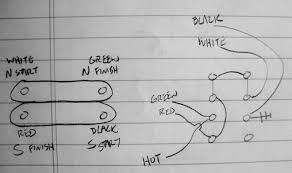 WHITE
N START
GREEN
N FINISH
RED
S FINISH
BLACK
S START
BLACK
WHITE
GREEN
RED
HOT